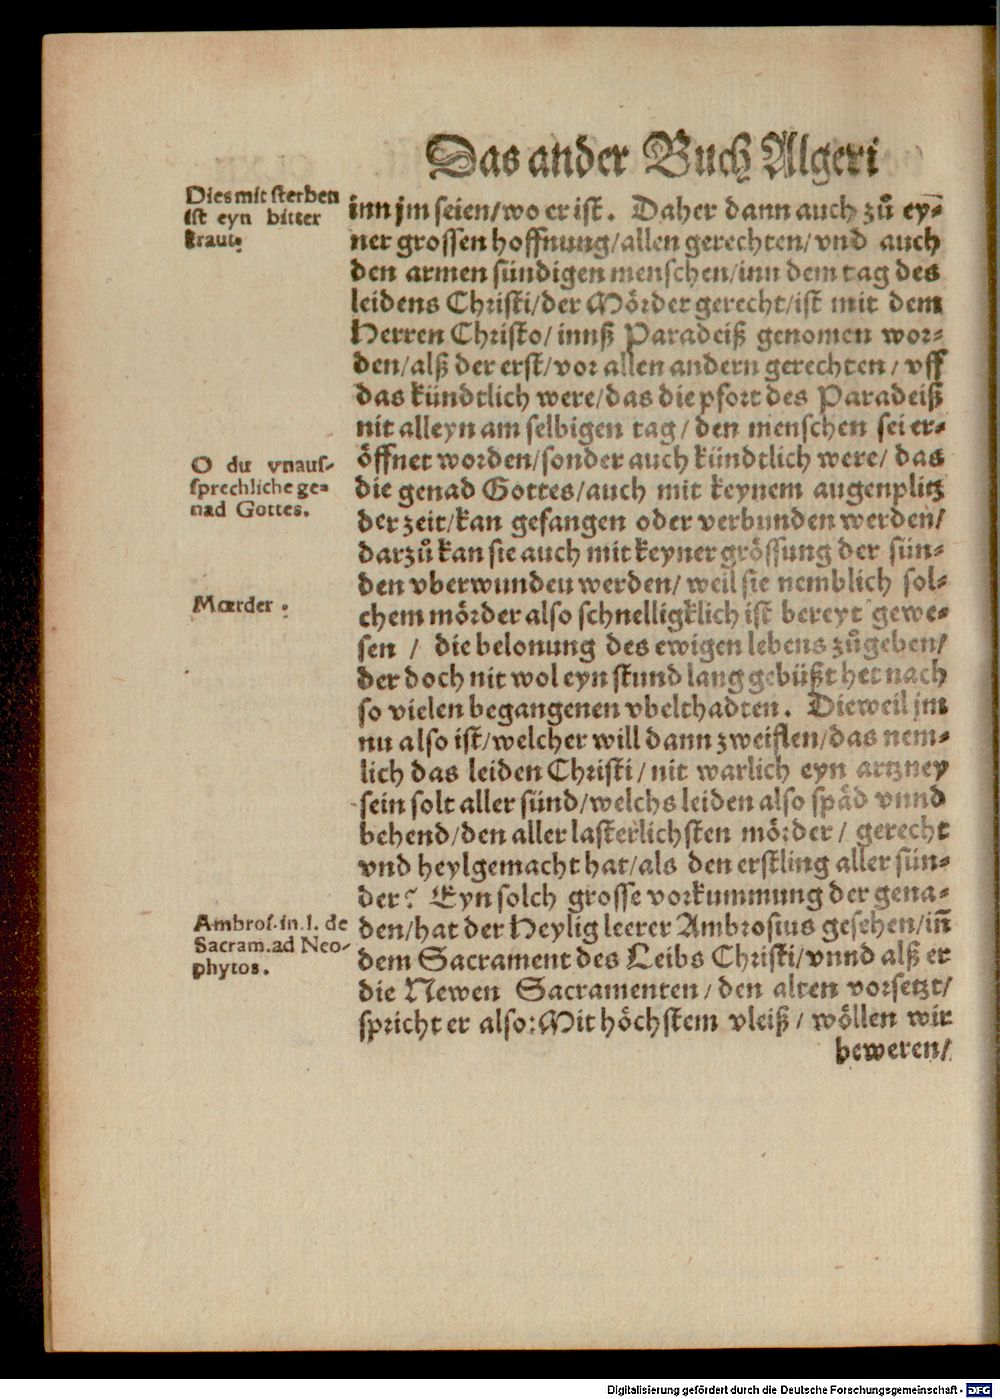 Das ander Buch Algeri
Dies mit sterben
ist eyn bitter
kraut.
inn jm seien/wo er ist. Daher dann auch zuͦ ey⸗
ner grossen hoffnung/allen gerechten/vnd auch
den armen sündigen menschen/inn dem tag des
leidens Christi/der Moͤrder gerecht/ist mit dem
Herren Christo/innß Paradeiß genomen wor⸗
den/alß der erst/vor allen andern gerechten/vff
das kündtlich were/das die pfort des Paradeiß
nit alleyn am selbigen tag/den menschen sei er⸗
oͤffnet worden/sonder auch kündtlich were/das
O du vnaus-
sprechliche ge-
nad Gottes.
die genad Gottes/auch mit keynem augenplitz
der zeit/kan gefangen oder verbunden werden/
darzuͦ kan sie auch mit keyner groͤssung der sün⸗
den vberwunden werden/weil sie nemblich sol⸗
Mœrder.
chem moͤrder also schnelligklich ist bereyt gewe⸗
sen / die belonung des ewigen lebens zuͦgeben/
der doch nit wol eyn stund lang gebüßt het nach
so vielen begangenen vbelthadten. Dieweil jm
nu also ist/welcher will dann zweiflen/das nem⸗
lich das leiden Christi/nit warlich eyn artzney
sein solt aller sünd/welchs leiden also spaͤd vnnd
behend/den aller lasterlichsten moͤrder/gerecht
vnd heylgemacht hat/als den erstling aller sün⸗
der? Eyn solch grosse vorkummung der gena⸗
Ambros.in.l.de
Sacram.ad Neo-
phytos.
den/hat der Heylig leerer Ambrosius gesehen/in̄
dem Sacrament des Leibs Christi/vnnd alß er
die Newen Sacramenten/den alten vorsetzt/
spricht er also: Mit hoͤchstem vleiß/woͤllen wir
beweren/
Digitalisierung gefördert durch die Deutsche Forschungsgemeinschaft - DFG